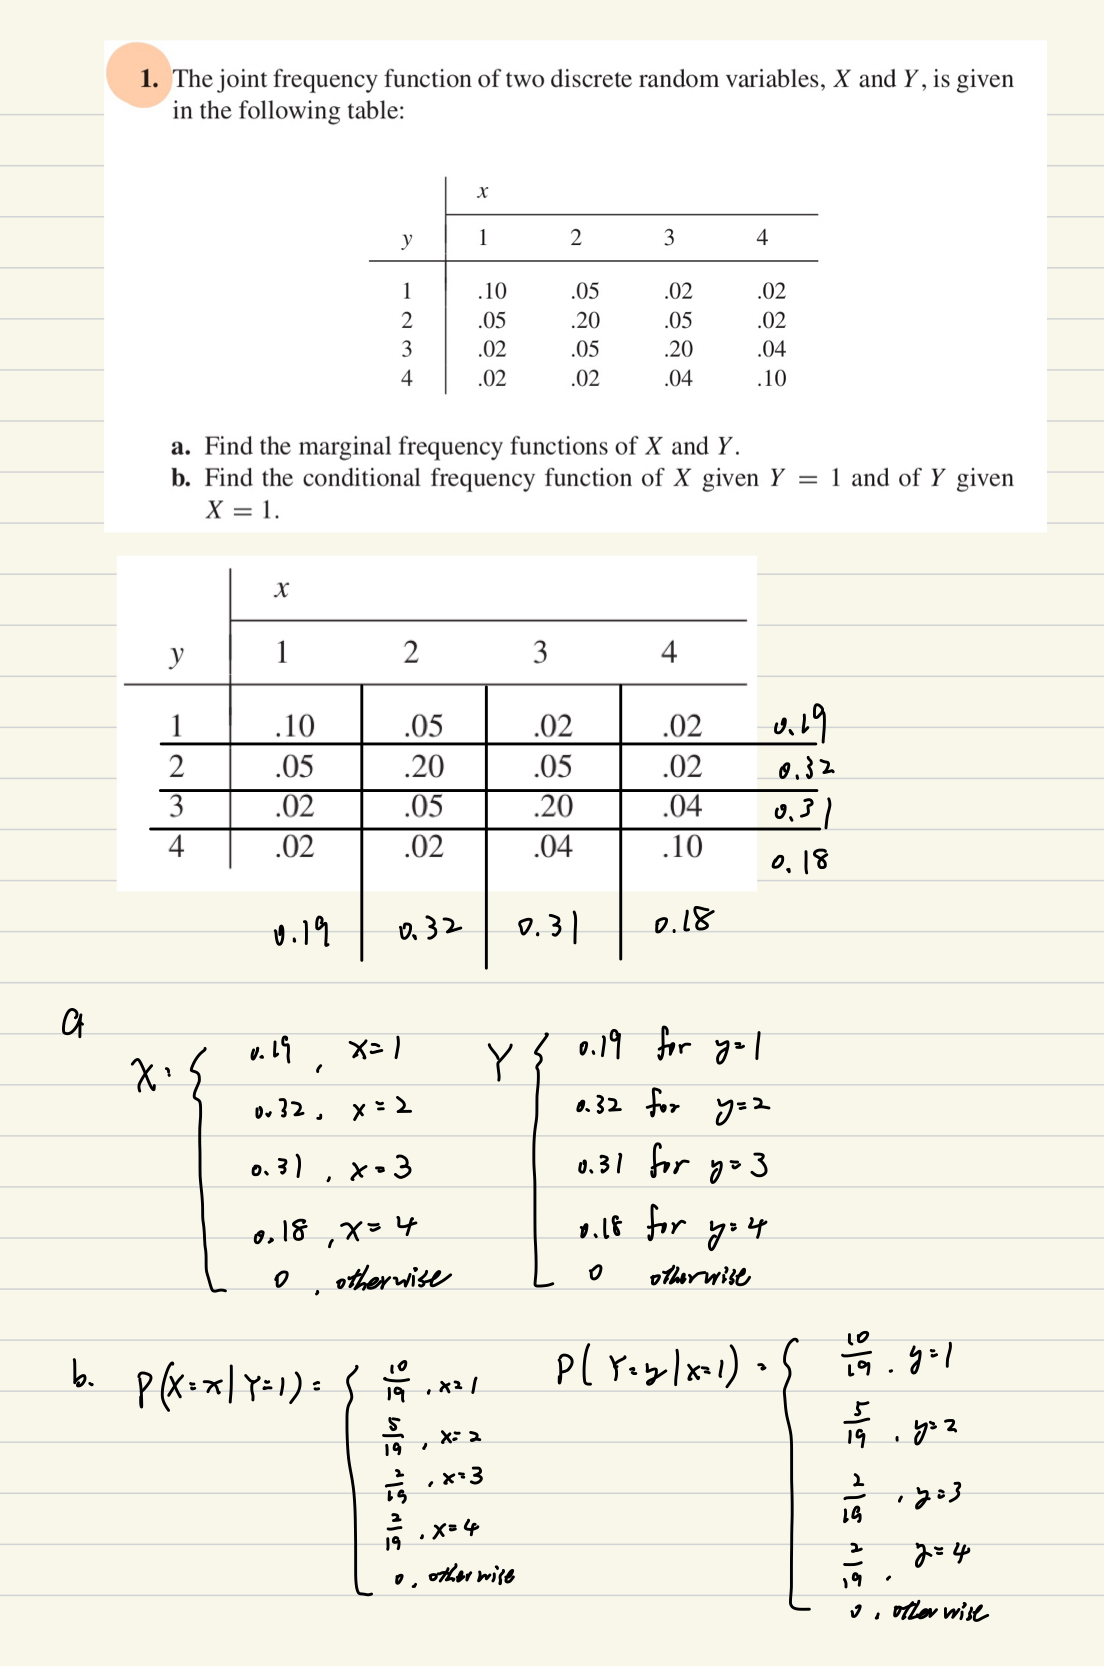 1. The joint frequency function of two discrete random variables, X and Y, is given
in the following table:
x
y 1 2 3 4
1 .10 .05 .02 .02
2 .05 .20 .05 .02
3 .02 .05 .20 .04
4 .02 .02 .04 .10
a. Find the marginal frequency functions of X and Y.
b. Find the conditional frequency function of X given Y = 1 and of Y given
X = 1.
x
y 1 2 3 4
1 .10 .05 .02 .02 0.19
2 .05 .20 .05 .02 0.32
3 .02 .05 .20 .04 0.31
4 .02 .02 .04 .10 0.18
0.19 0.32 0.31 0.18
a
X: { 0.19, x=1
0.32, x=2
0.31, x=3
0.18, x=4
0, otherwise
Y { 0.19 for y=1
0.32 for y=2
0.31 for y=3
0.18 for y=4
0 otherwise
b. P(X=x|Y=1) = { 10/19, x=1
5/19, x=2
2/19, x=3
2/19, x=4
0, otherwise
P(Y=y|x=1) = { 10/19, y=1
5/19, y=2
2/19, y=3
2/19, y=4
0, otherwise